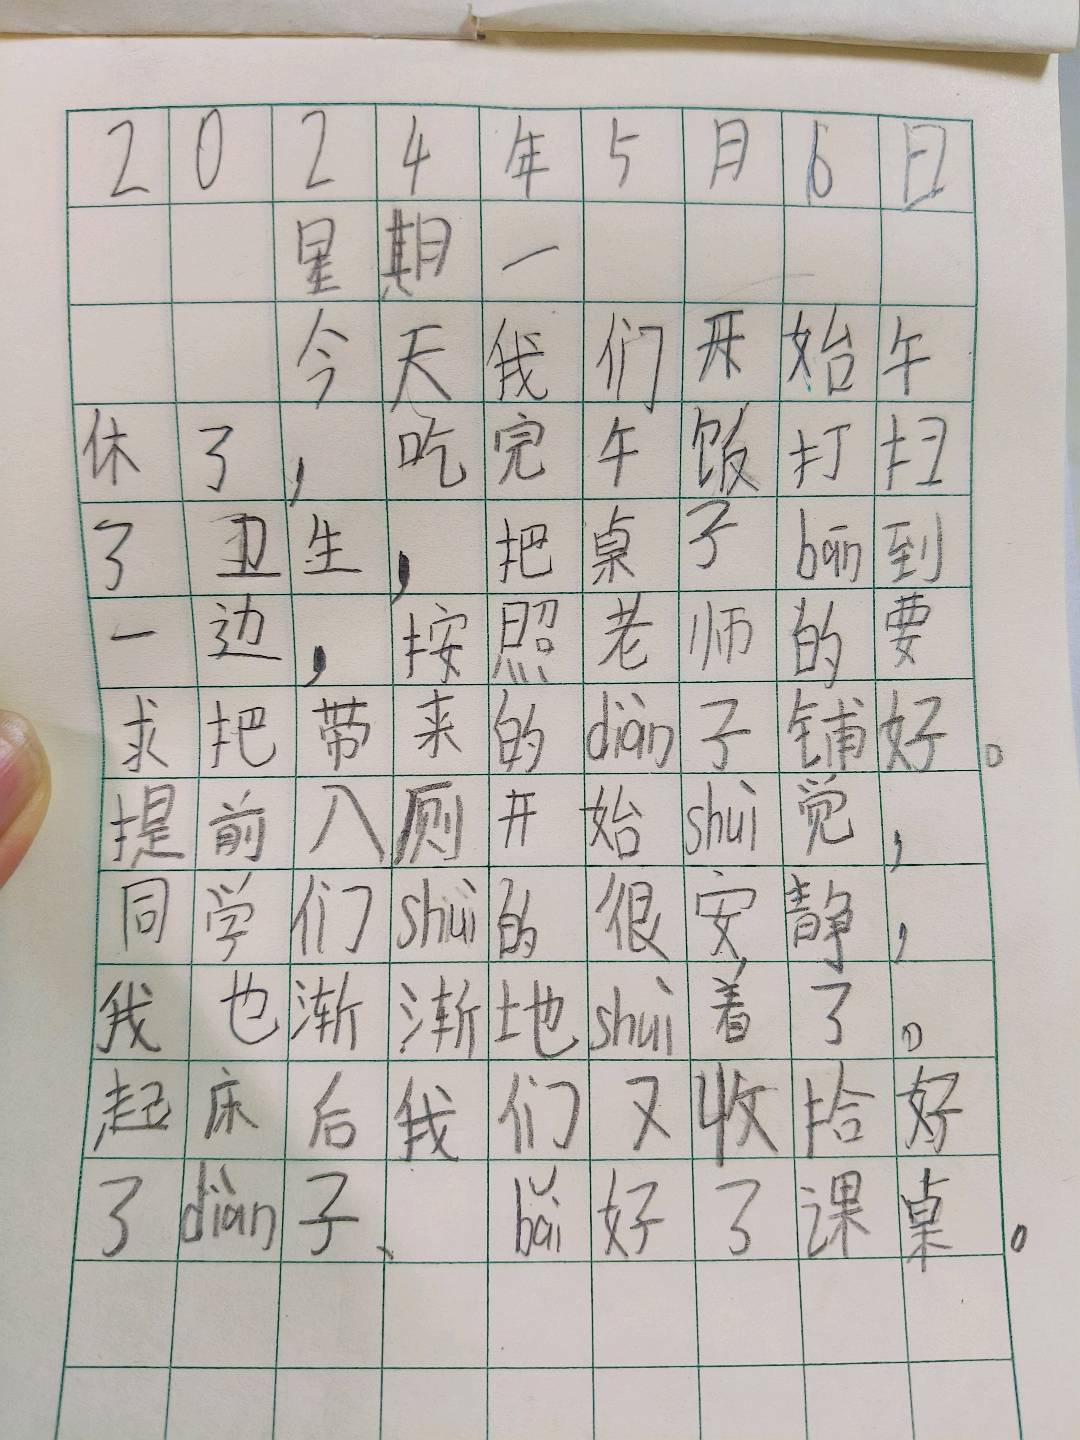 2024年5月6日
星期一
今天我们开始午
休了，吃完午饭打扫
了卫生，把桌子bān到
一边，按照老师的要
求把带来的diàn子铺好。
提前入厕开始shuì觉，
同学们shuì的很安静，
我也渐渐地shuì着了。
起床后我们又收拾好
了diàn子、bǎi好了课桌。